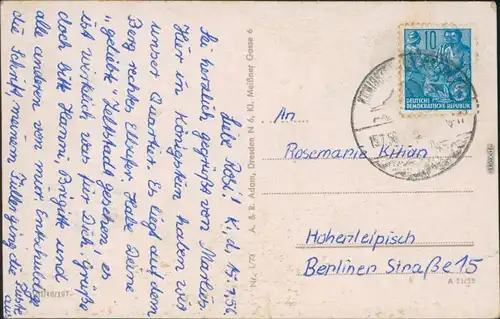 Liebe Rosi! K. d. 15.7.56.
Sei herzlich gegrüßt von Marlies.
Hier in Königstein haben wir
unser Quartier. Es liegt auf dem
Berg rechtes Elbufer. Habe Deine
"geliebte" Zeltstadt gesehen! es
ist wirklich was für Dich. Grüße
doch bitte Hanni, Brigitt und
alle anderen von mir. Entschuldige
die Schrift, meinem Füller ging die Tinte
aus
Nr. 174 A. & R. Adam, Dresden N 6, Kl. Meißner Gasse 6
10
DEUTSCHE
DEMOKRATISCHE REPUBLIK
An
Rosemarie Kilian
Hohenleipisch
Berliner Straße 15